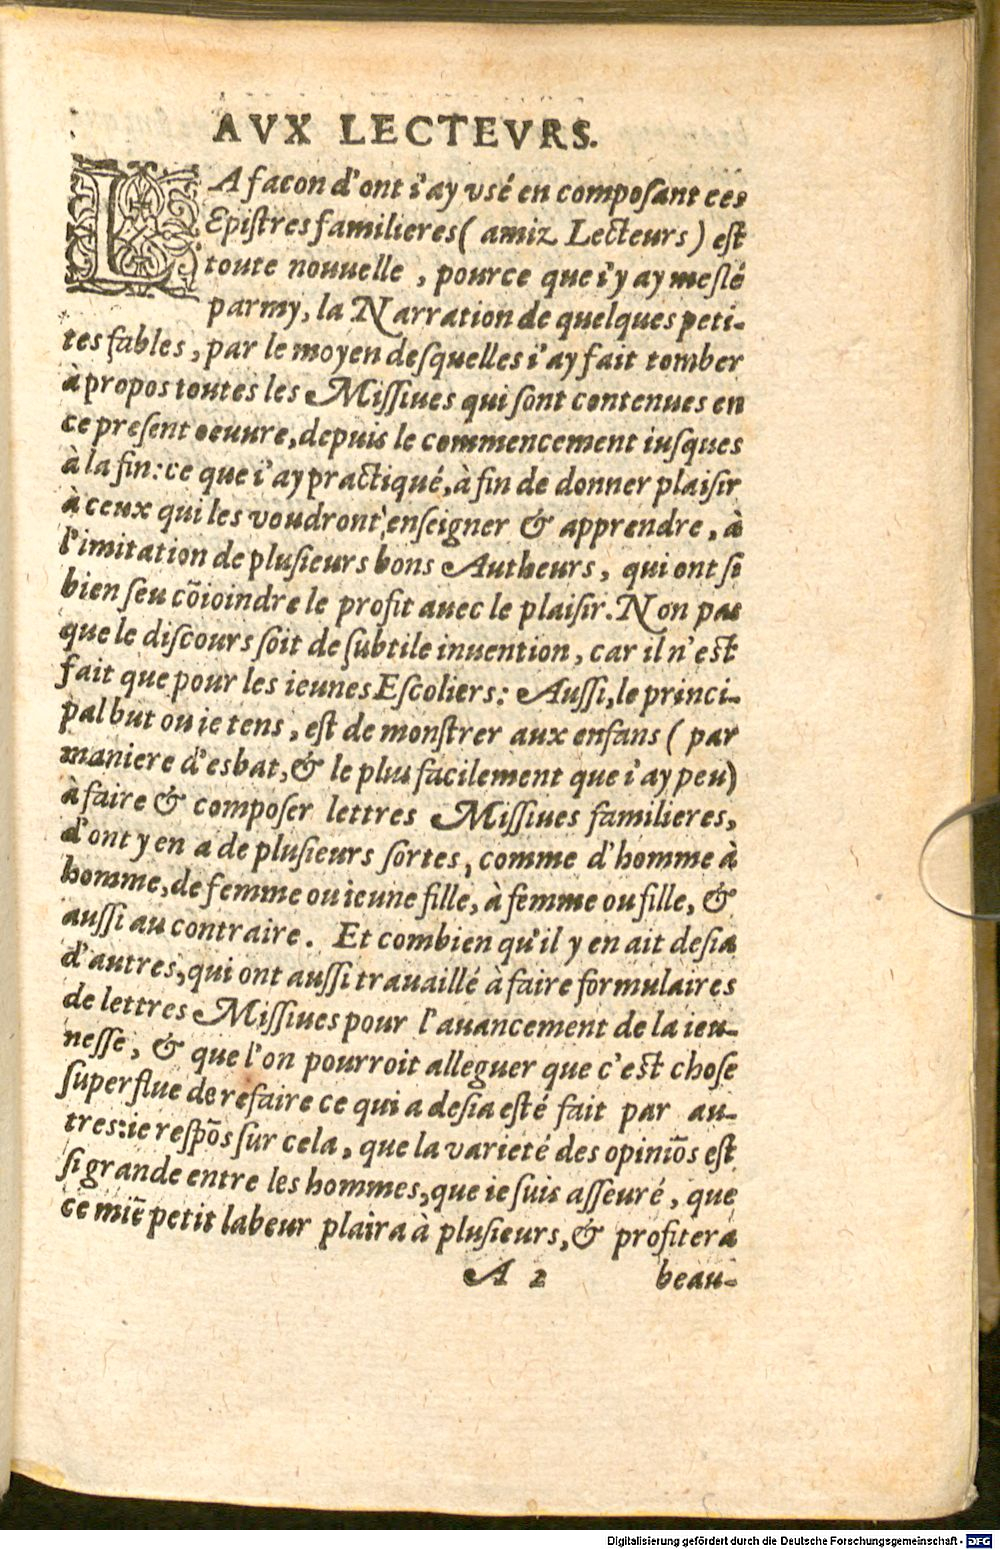 AVX LECTEVRS.
LA facon d'ont i'ay vsé en composant ces
Epistres familieres ( amiz Lecteurs ) est
toute nouuelle , pource que i'y ay meslé
parmy, la Narration de quelques peti-
tes fables , par le moyen desquelles i'ay fait tomber
à propos toutes les Missiues qui sont contenues en
ce present oeuure, depuis le commencement iusques
à la fin: ce que i'ay practiqué, à fin de donner plaisir
à ceux qui les voudront enseigner & apprendre , à
l'imitation de plusieurs bons Autheurs , qui ont si
bien seu cōioindre le profit auec le plaisir. Non pas
que le discours soit de subtile inuention , car il n'est
fait que pour les ieunes Escoliers: Aussi, le princi-
pal but ou ie tens , est de monstrer aux enfans ( par
maniere d'esbat, & le plus facilement que i'ay peu)
à faire & composer lettres Missiues familieres,
d'ont y en a de plusieurs sortes, comme d'homme à
homme, de femme ou ieune fille, à femme ou fille, &
aussi au contraire . Et combien qu'il y en ait desia
d'autres, qui ont aussi trauaillé à faire formulaires
de lettres Missiues pour l'auancement de la ieu-
nesse , & que l'on pourroit alleguer que c'est chose
superflue de refaire ce qui a desia esté fait par au-
tres: ie respōs sur cela , que la varieté des opiniōs est
si grande entre les hommes, que ie suis asseuré , que
ce miē petit labeur plaira à plusieurs, & profitera
A 2 beau-
Digitalisierung gefördert durch die Deutsche Forschungsgemeinschaft - DFG